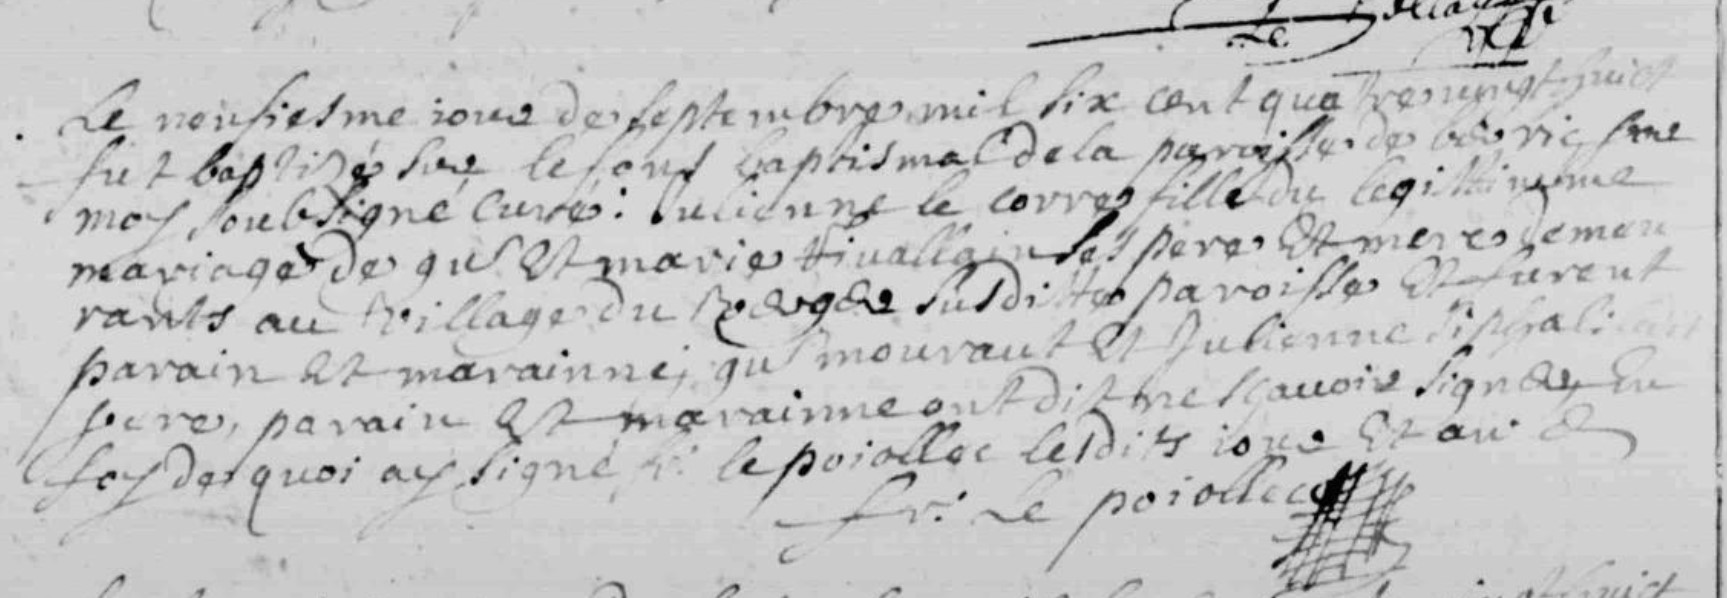 Le neufiesme iour de septembre mil six cent quatre vingt huict
fut baptizé sur le fons baptismal de la paroisse de par
moy soubsigné curé: Julienne le corre fille du legittimme
mariage de gu et marie ses pere et mere demeu
rants au village du susditte paroisse et furent
parain et marainne, gu mourant et Julienne
pere, parain et marainne ont dit ne sçauoir signer, en
foy de quoi ay signé fr: le poiollec lesdits iour et an
fr: Le poiollec